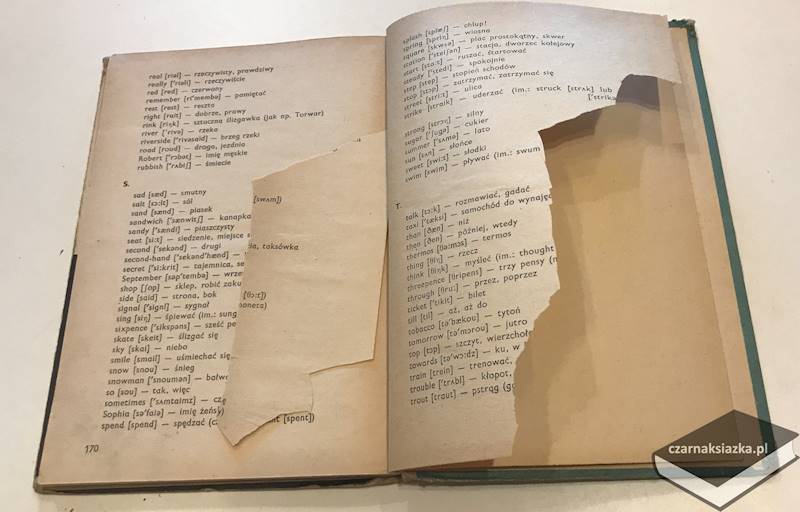 real [riəl] — rzeczywisty, prawdziwy
really ['riəli] — rzeczywiście
red [red] — czerwony
remember [rɪ'membə] — pamiętać
rest [rest] — reszta
right [rait] — dobrze, prawy
rink [riŋk] — sztuczna ślizgawka (jak np. Torwar)
river ['rivə] — rzeka
riverside ['rivəsaid] — brzeg rzeki
road [roud] — droga, jezdnia
Robert ['rɔbət] — imię męskie
rubbish ['rʌbiʃ] — śmiecie
S.
sad [sæd] — smutny
salt [sɔ:lt] — sól
sand [sænd] — piasek
sandwich ['sænwitʃ] — kanapka
sandy ['sændi] — piaszczysty
seat [si:t] — siedzenie, miejsce
second ['sekənd] — drugi
second-hand ['sekənd'hænd] —
secret [si:krit] — tajemnica,
September [səp'tembə] —
shop [ʃɔp] — sklep, robić
side [said] — strona, bok
signal ['signl] — sygnał
sing [siŋ] — śpiewać (im.: sung
sixpence ['sikspəns] — sześć
skate [skeit] — ślizgać się
sky [skai] — niebo
smile [smail] — uśmiechać się
snow [snou] — śnieg
snowman ['snoumən] —
so [sou] — tak, więc
sometimes ['sʌmtaimz] —
Sophia [sə'faiə] — imię
spend [spend] — spędzać
[swʌm])
taksówka
[θɔ:t])
[spent])
170
splash [splæʃ] — chlup!
spring [spriŋ] — wiosna
square [skwɛə] — plac prostokątny, skwer
station ['steiʃən] — stacja, dworzec kolejowy
start [sta:t] — ruszać, startować
steady ['stedi] — spokojnie
step [step] — stopień schodów
stop [stɔp] — zatrzymać, zatrzymać się
street [stri:t] — ulica
strike [straik] — uderzać (im.: struck [strʌk] lub
['strikə
strong [strɔŋ] — silny
sugar ['ʃugə] — cukier
summer ['sʌmə] — lato
sun [sʌn] — słońce
sweet [swi:t] — słodki
swim [swim] — pływać (im.: swum
T.
talk [tɔ:k] — rozmawiać, gadać
taxi ['tæksi] — samochód do
than [ðæn] — niż
then [ðen] — później, wtedy
thermos [θə:mɔs] — termos
thing [θiŋ] — rzecz
think [θiŋk] — myśleć (im.: thought
threepence [θripens] — trzy pensy
through [θru:] — przez, poprzez
ticket ['tikit] — bilet
till [til] — aż, aż do
tobacco [tə'bækou] — tytoń
tomorrow [tə'mɔrou] — jutro
top [tɔp] — szczyt,
towards [tə'wɔ:dz] — ku, w
train [trein] — trenować,
trouble ['trʌbl] — kłopot,
trout [traut] — pstrąg
czarnaksiazka.pl